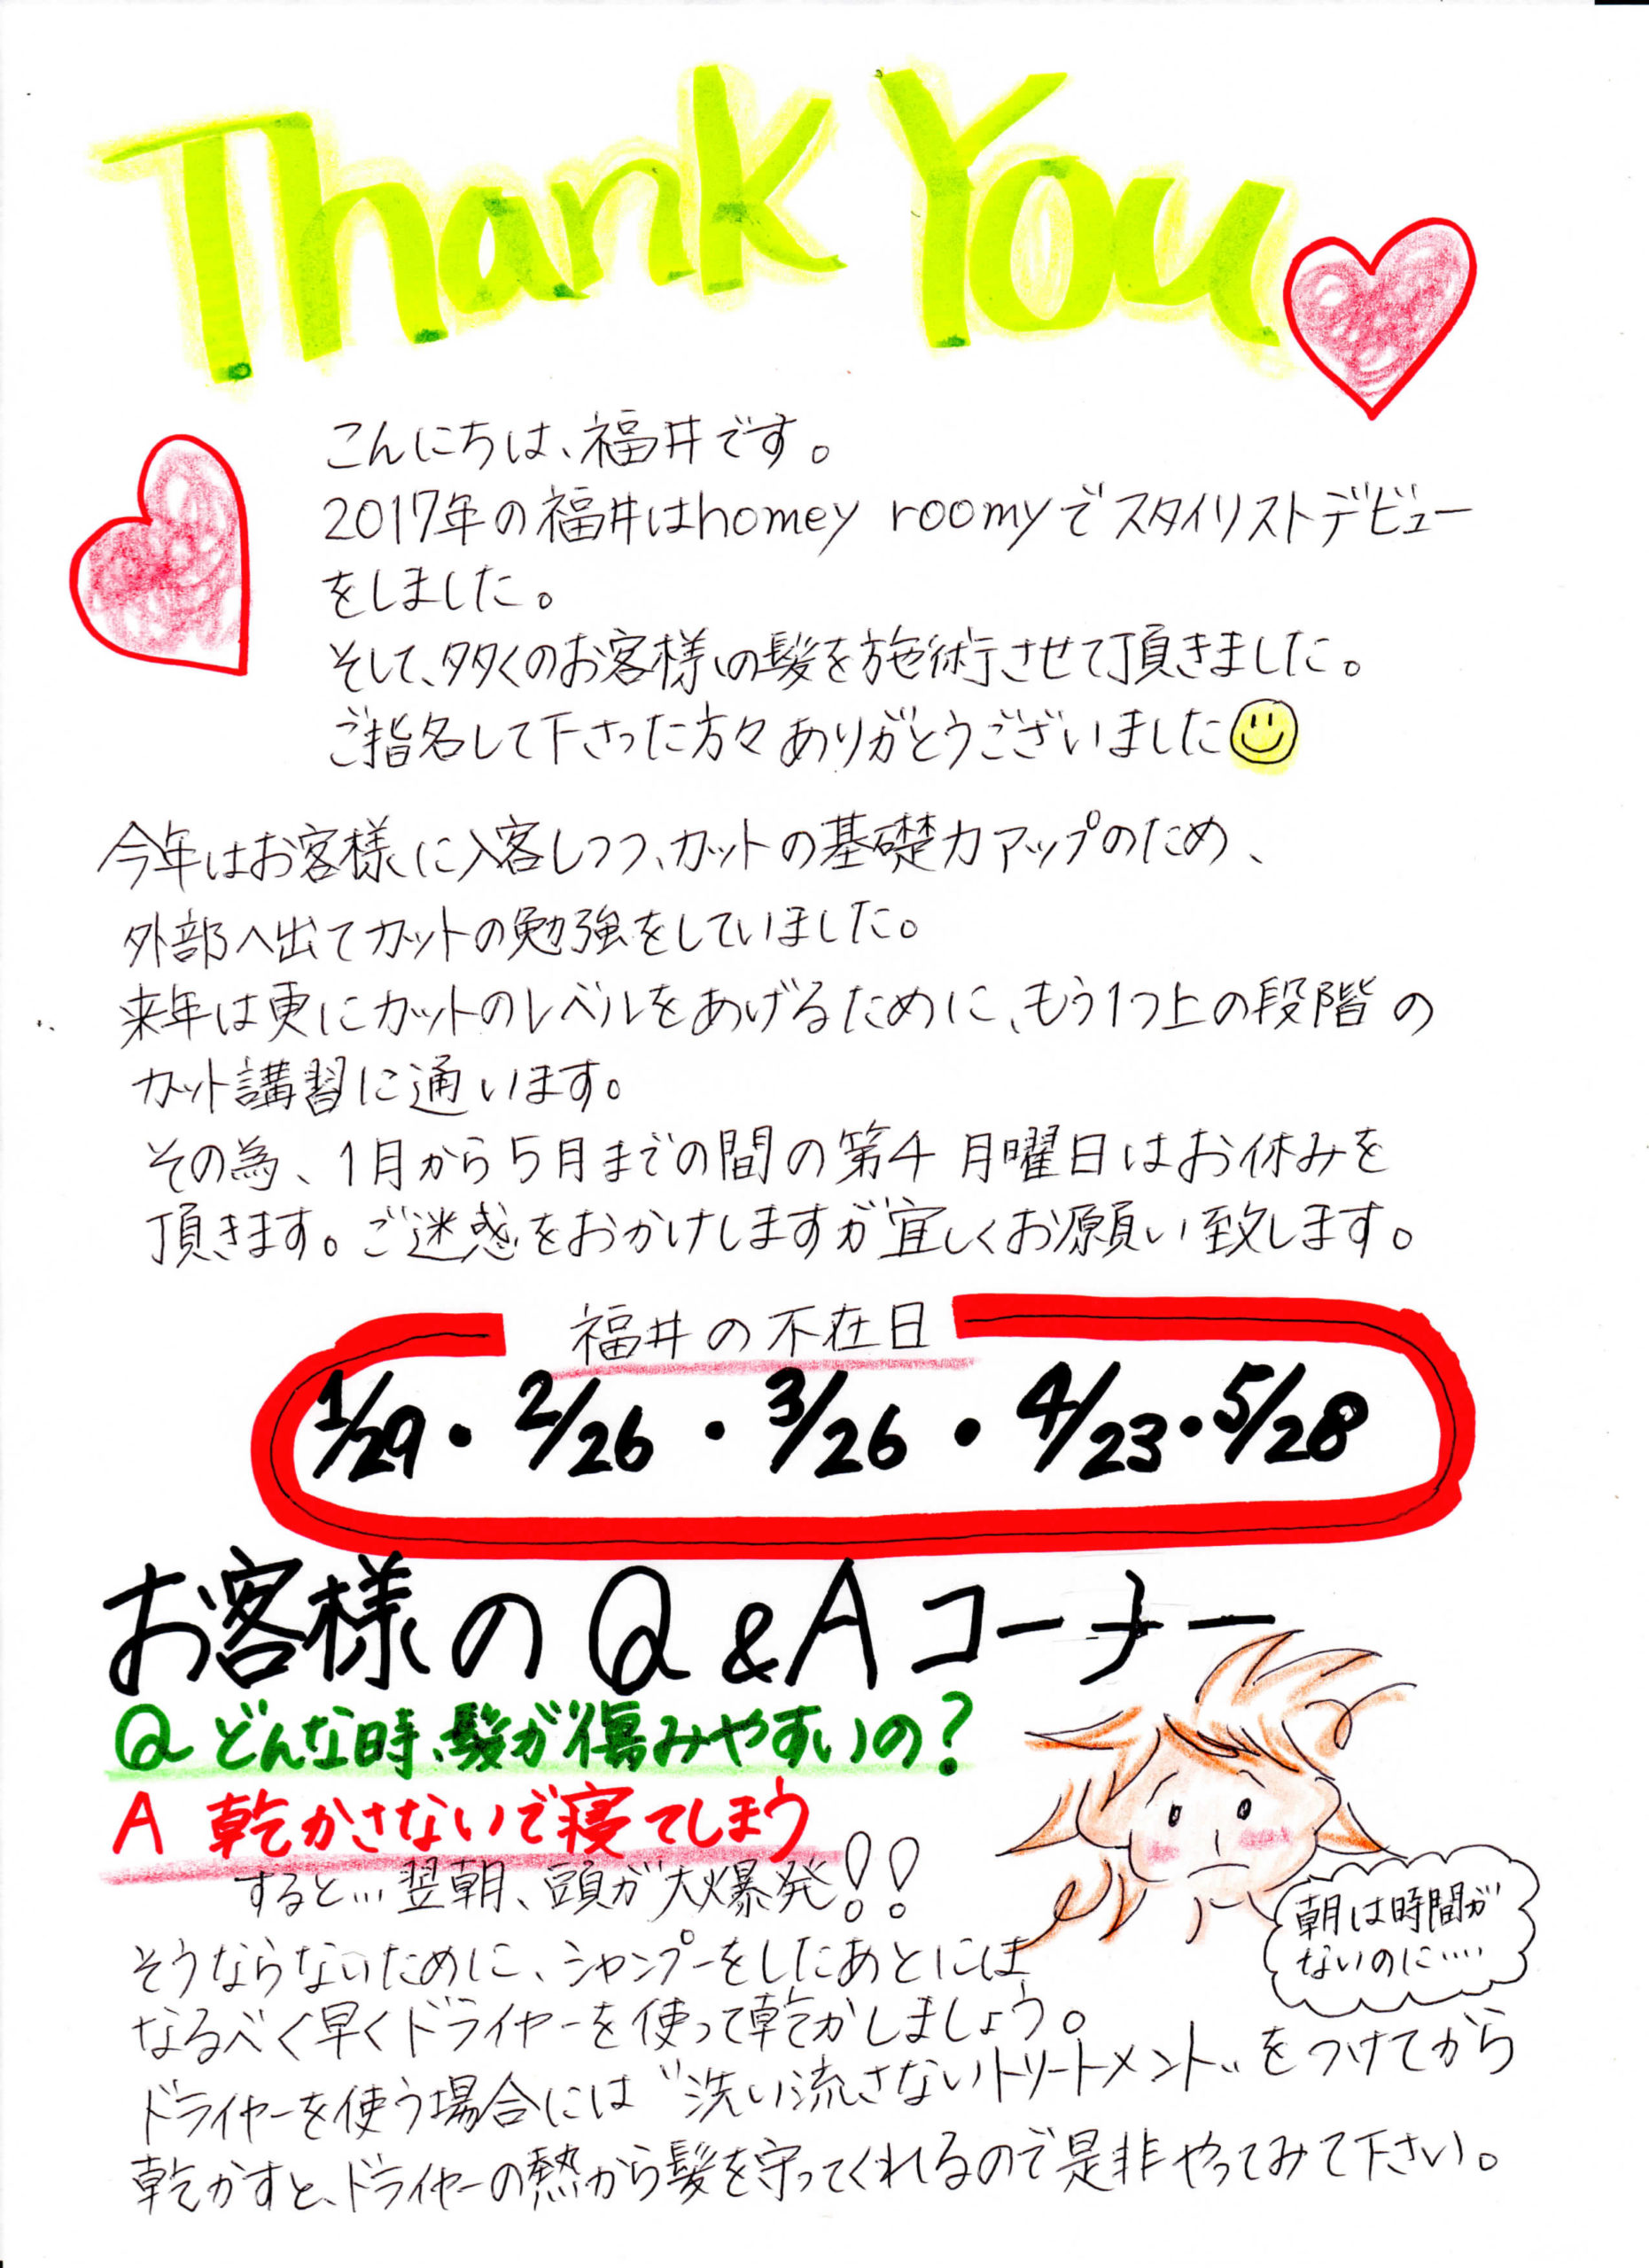 Thank You
こんにちは、福井です。
2017年の福井はhomey roomyでスタイリストデビュー
をしました。
そして、多くのお客様の髪を施術させて頂きました。
ご指名して下さった方々ありがとうございました
今年はお客様に入客しつつ、カットの基礎力アップのため、
外部へ出てカットの勉強をしていました。
来年は更にカットのレベルをあげるために、もう1つ上の段階の
カット講習に通います。
その為、1月から5月までの間の第4月曜日はお休みを
頂きます。ご迷惑をおかけしますが宜しくお願い致します。
福井の不在日
1/29・2/26・3/26・4/23・5/28
お客様のQ&Aコーナー
Q どんな時、髪が傷みやすいの?
A 乾かさないで寝てしまう
すると…翌朝、頭が大爆発!!
朝は時間が
ないのに….
そうならないために、シャンプーをしたあとには
なるべく早くドライヤーを使って乾かしましょう。
ドライヤーを使う場合には〝洗い流さないトリートメント〟をつけてから
乾かすと、ドライヤーの熱から髪を守ってくれるので是非やってみて下さい。